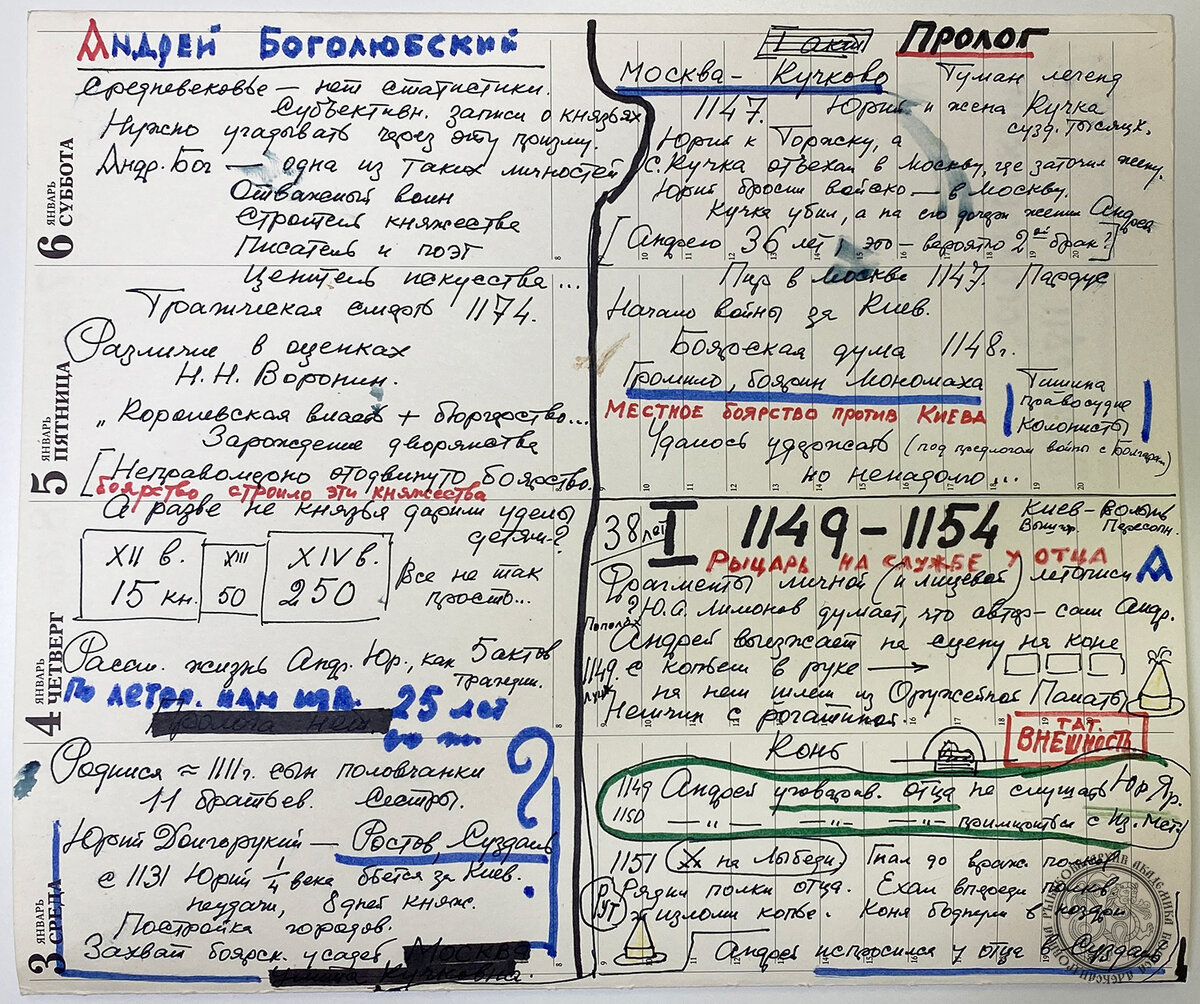 Андрей Боголюбский
Средневековье — нет статистики.
Субъективн. записи о князьях
Нужно угадывать через эту призму.
Андр. Бог — одна из таких личностей
Отважный воин
Строитель княжества
Писатель и поэт
Ценитель искусства...
Трагическая смерть 1174.
Различие в оценках
Н.Н. Воронин.
„Королевская власть + бюргерство...
Зарождение дворянства
[Неправомерно отодвинуто боярство.
боярство строило эти княжества
А разве не князья дарили уделы
детям?
XII в. XIII XIV в.
15 кн. 50 250
Все не так
просто...
Рассм. жизнь Андр. Юр., как 5 актов
Трагедии.
По летоп. нам изв. 25 лет
Родился ≈ 1111г. сын половчанки
11 братьев. Сестры.
?
Юрий Долгорукий — Ростов, Суздаль
с 1131 Юрий 1/4 века бьется за Киев.
неудачи, 8 дней княж.
Постройка городов.
Захват боярск. усадеб Москва
6 ЯНВАРЬ СУББОТА
5 ЯНВАРЬ ПЯТНИЦА
4 ЯНВАРЬ ЧЕТВЕРГ
3 ЯНВАРЬ СРЕДА
I акт Пролог
Москва — Кучково Туман легенд
1147. Юрий и жена Кучка
сузд. тысяцк.
Юрий к Торжску, а
С. Кучка отъехал в Москву, где заточил жену.
Юрий бросил войско — в Москву.
Кучка убил, а на его дочери женил Андрея
[Андрею 36 лет, это — вероятно 2ой брак?]
Пир в Москве 1147. Пардус
Начало войны за Киев.
Боярская дума 1148г.
Громило, боярин Мономаха
Тишина
Правосудие
Колонисты
Местное боярство против Киева
Удалось удержать (под предлогом войны с Болгарами)
но ненадолго...
38 лет I 1149 – 1154 Киев – Волынь
Вышгор. Пересопн.
Рыцарь на службе у отца
Фрагменты личной (и лицевой) летописи А
? Ю.А. Лимонов думает, что автор — сам Андр.
Андрей выезжает на сцену на коне
1149. с копьем в руке →
Луцк на нем шлем из Оружейной Палаты
Немчин с рогатиной.
Конь
ТАТ. ВНЕШНОСТЬ
1149 Андрей уговарив. отца не слушать Юр. Яр.
1150 — „ — — „ — — „ — примириться с Из. Мст.
1151 на Лыбеди. Гнал до враж. полков
Рут Рядил полки отца. Ехал впереди полков
и изломи копье. Коня боднули в ноздри
Андрей испросился у отца в Суздаль